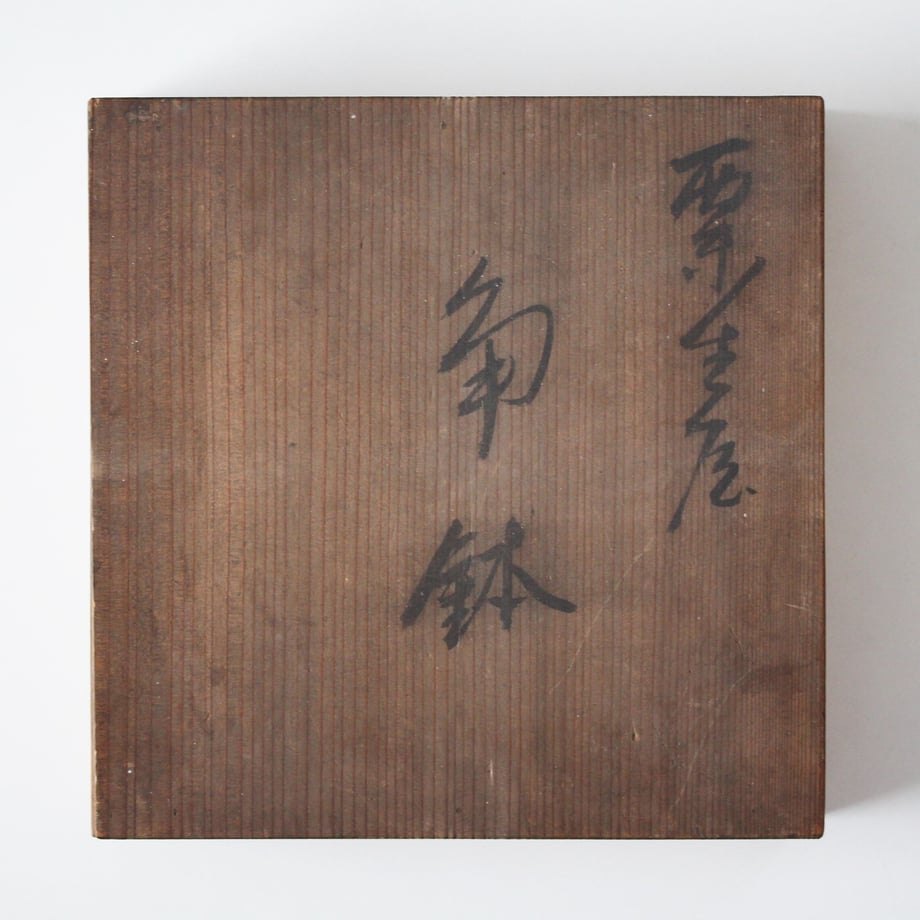 粟生屋
角鉢